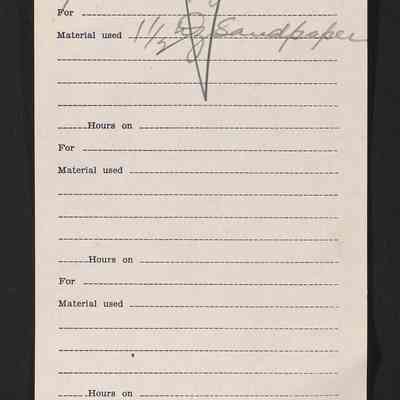 For
Material used 1 1/2 Dz Sandpaper
Hours on
For
Material used
Hours on
For
Material used
Hours on